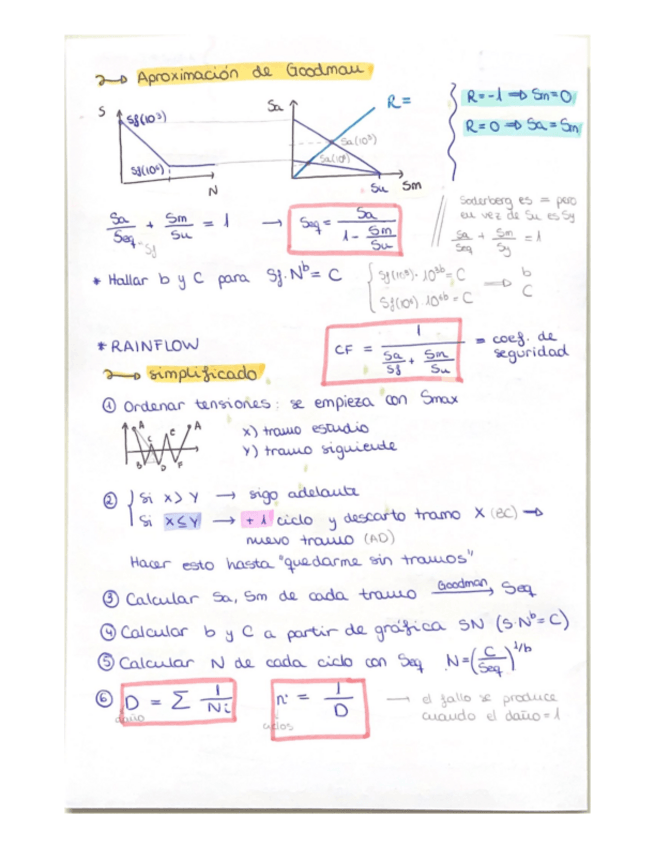 Aproximación de Goodman
S
Sf(10³)
Sf(10⁶)
N
Sa
R =
Sa(10³)
Sa(10⁶)
Su
Sm
R=-1 ⇒ Sm=0
R=0 ⇒ Sa=Sm
Sa/Seq + Sm/Su = 1 → Seq = Sa/(1 - Sm/Su)
Sf
Soderberg es = pero
en vez de Su es Sy
Sa/Seq + Sm/Sy = 1
* Hallar b y C para Sf·N^b = C
Sf(10³)·10^3b = C
Sf(10⁶)·10^6b = C
⇒ b
C
* RAINFLOW
CF = 1/(Sa/Sf + Sm/Su) = coef. de
seguridad
simplificado
① Ordenar tensiones: se empieza con Smax
A B C D E F A
x) tramo estudio
y) tramo siguiente
② Si x > y → sigo adelante
Si x ≤ y → +1 ciclo y descarto tramo x (BC) ⇒
nuevo tramo (AD)
Hacer esto hasta "quedarme sin tramos"
③ Calcular Sa, Sm de cada tramo Goodman→ Seq
④ Calcular b y C a partir de gráfica SN (S·N^b = C)
⑤ Calcular N de cada ciclo con Seq N=(C/Seq)^1/b
⑥ D = Σ 1/Ni
daño
ni = 1/D
ciclos
→ el fallo se produce
cuando el daño=1